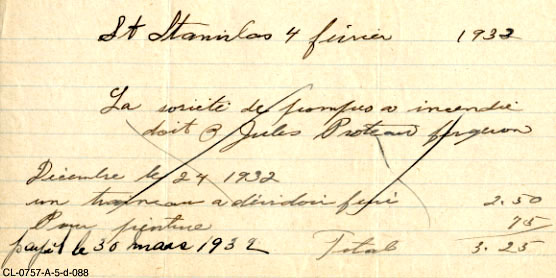 St Stanislas 4 février 1932
La société de pompes a incendie
doit a Jules Proteau forgeron
Décembre le 24 1932
un traineau a dévidoir ferré 2.50
Pour peinture 75
payé le 30 mars 1932 Total 3.25
CL-0757-A-5-d-088